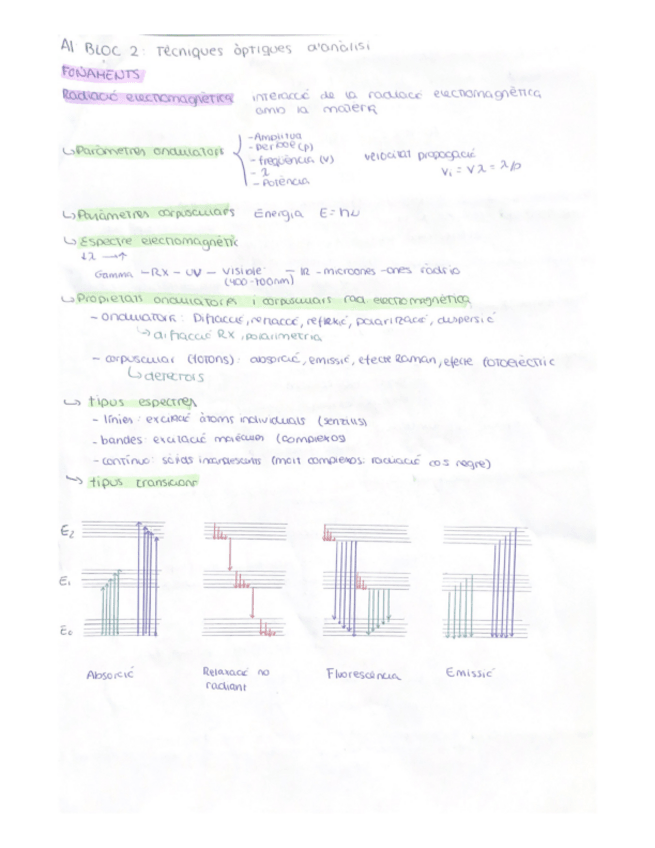 AI BLOC 2: Tècniques òptiques d'anàlisi
FONAMENTS
Radiació electromagnètica interacció de la radiació electromagnètica
amb la matèria
↳ Paràmetres ondulatoris
- Amplitud
- període (p)
- freqüència (ν)
- λ
- Potència
velocitat propagació
Vi = νλ = λ/p
↳ Paràmetres corpusculars Energia E = hν
↳ Espectre electromagnètic
↓λ → ↑
Gamma - RX - UV - Visible - IR - microones - ones ràdio
(400-700nm)
↳ Propietats ondulatòries i corpusculars rad electromagnètica
- ondulatòria: Difracció, refracció, reflexió, polarització, dispersió
↳ difracció RX, polarimetria
- corpuscular (fotons): absorció, emissió, efecte Raman, efecte fotoelèctric
↳ detectors
↳ tipus espectres
- línies: excitació àtoms individuals (senzills)
- bandes: excitació molècules (complexos)
- continuo: sòlids incandescents (molt complexos: radiació cos negre)
↳ tipus transicions
E₂
E₁
E₀
Absorció
Relaxació no
radiant
Fluorescència
Emissió